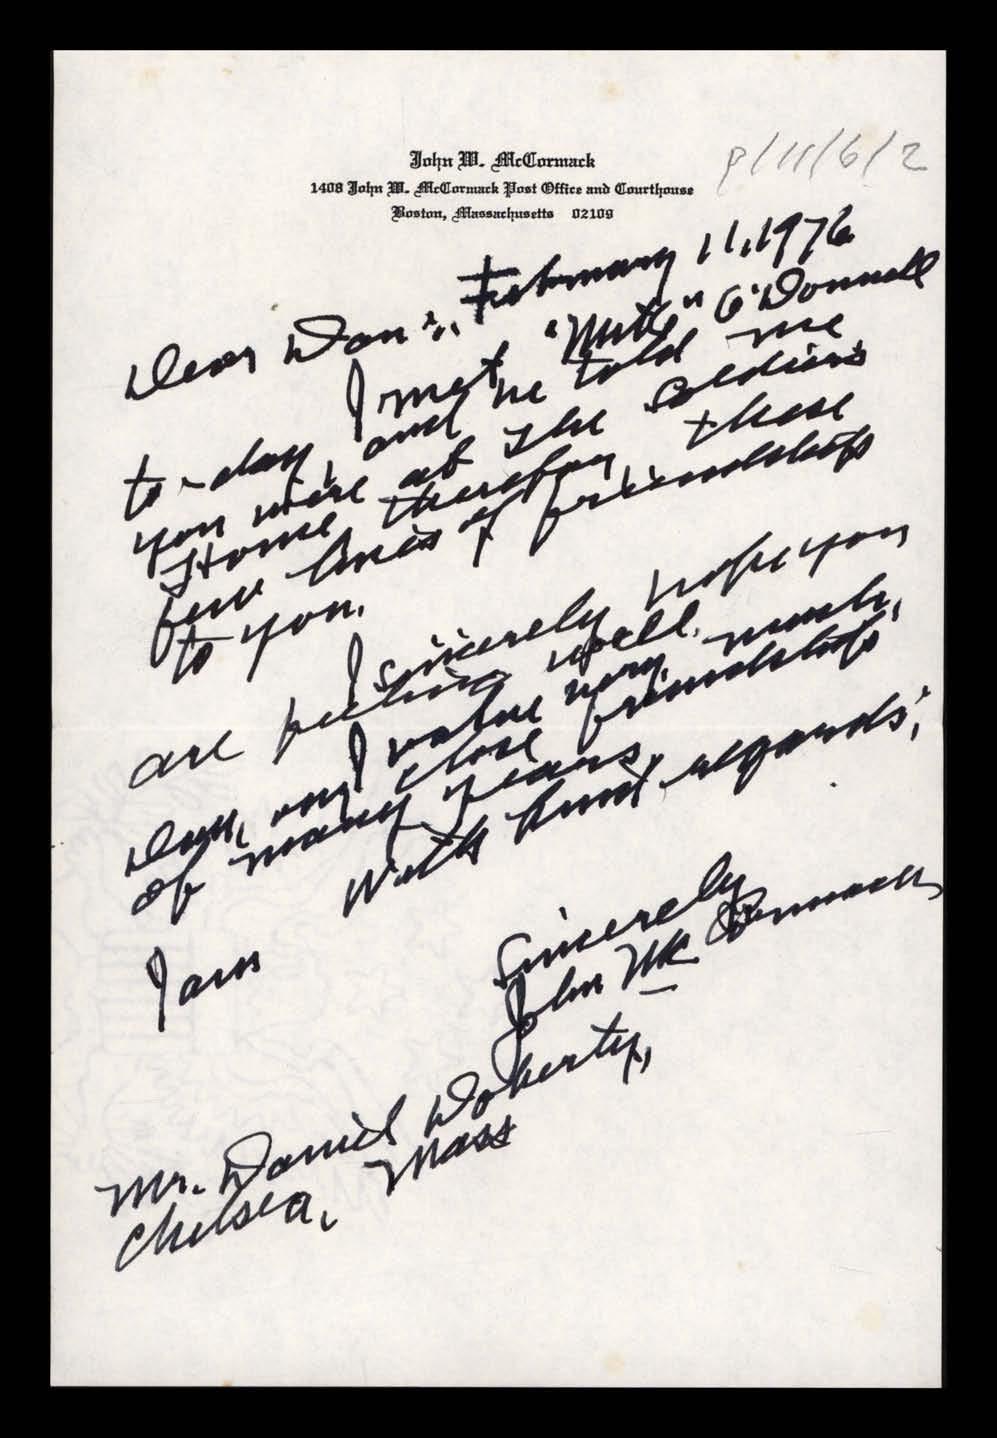 John W. McCormack
1408 John W. McCormack Post Office and Courthouse
Boston, Massachusetts 02109
P/11/6/2
February 11, 1976
Dear Dan:,
I met "Mike" O'Donnell
to-day, and he told me
you were at the Soldiers
Home, therefore these
few lines of friendship
to you.
I sincerely hope you
are feeling well.
I value very much,
Dan, our close friendship
of many years.
With kind regards,
I am
Sincerely
John McCormack
Mr. Daniel Doherty,
Chelsea, Mass